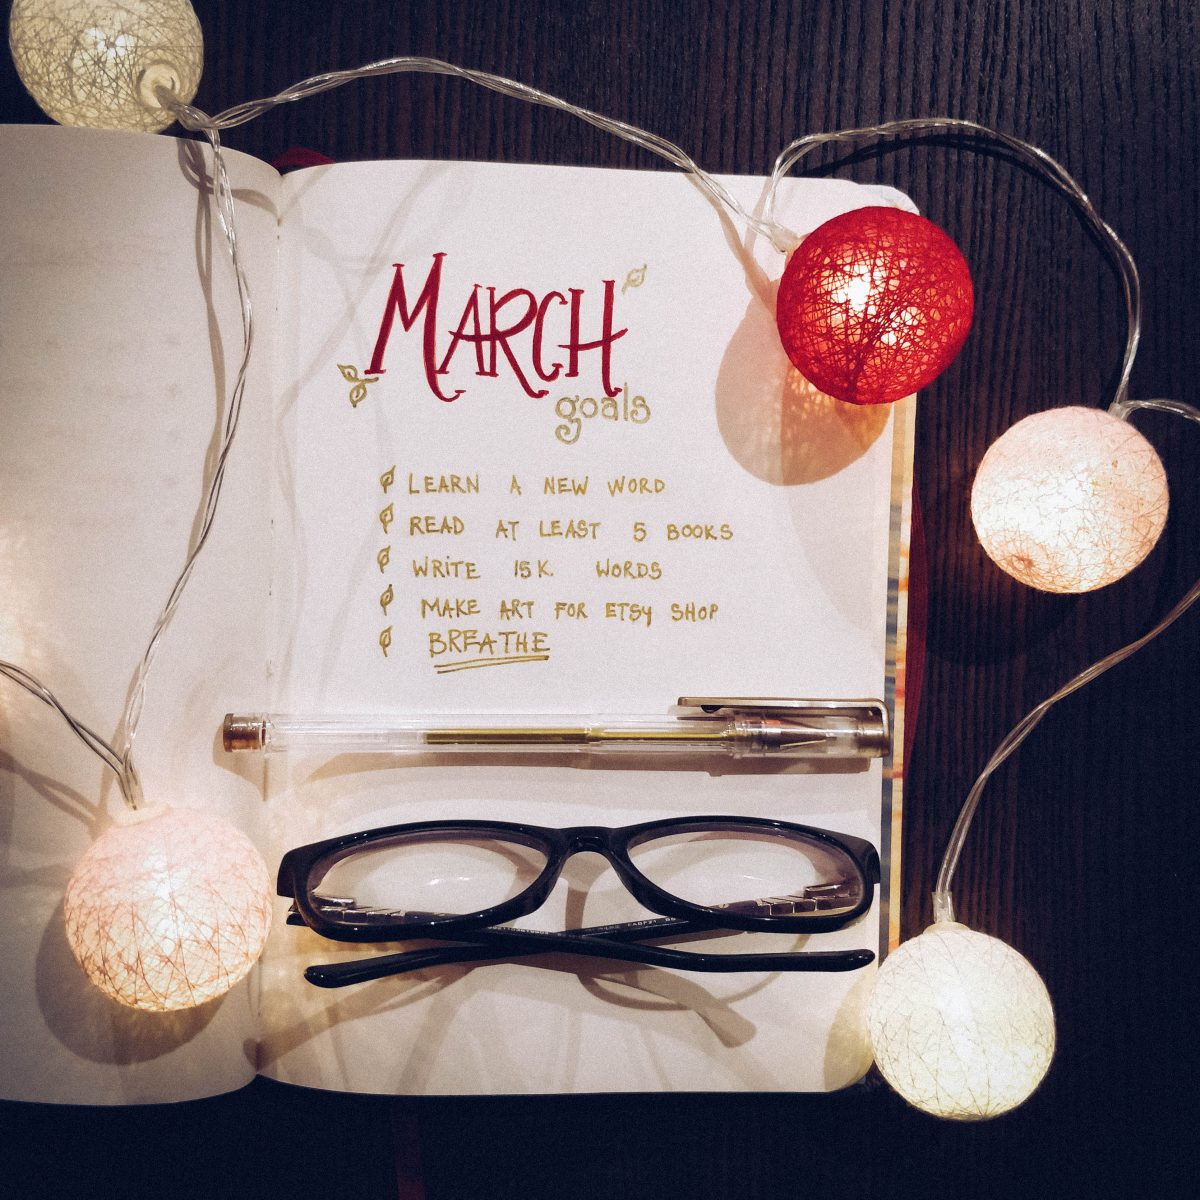 MARCH
goals
LEARN A NEW WORD
READ AT LEAST 5 BOOKS
WRITE 15K WORDS
MAKE ART FOR ETSY SHOP
BREATHE